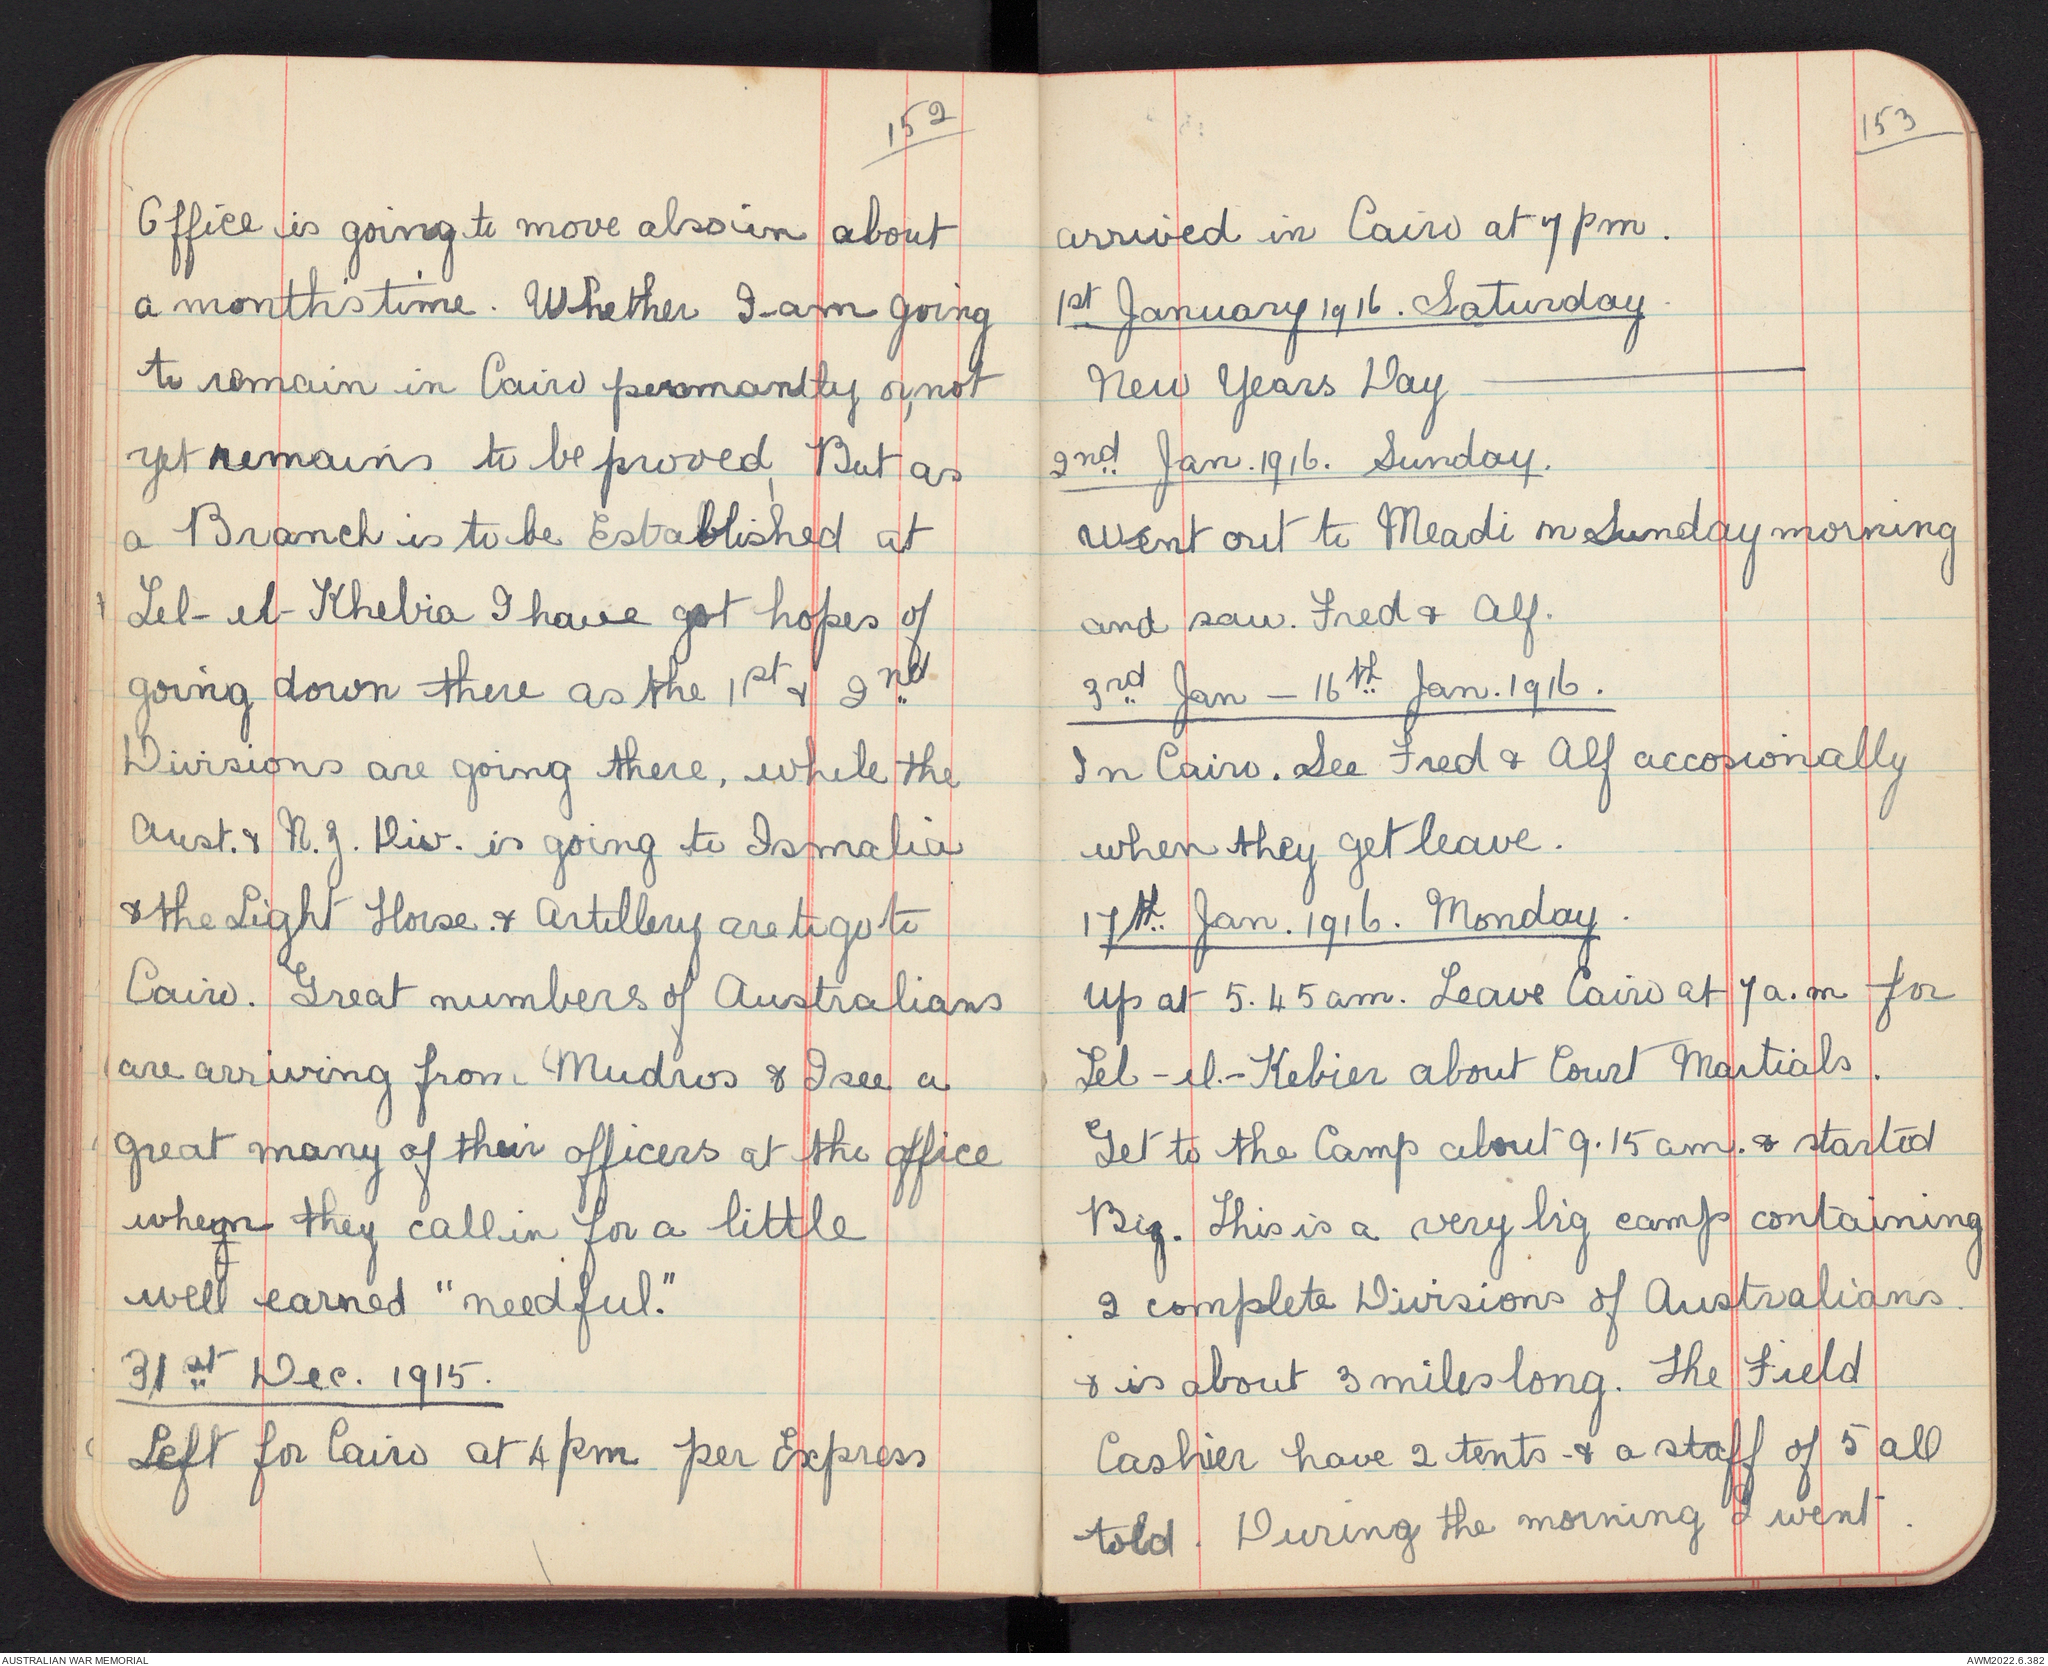 152
Office is going to move also in about
a month's time. Whether I am going
to remain in Cairo permantly or, not
yet remains to be proved, But as
a Branch is to be Established at
Tel-el-Khebia I have got hopes of
going down there as the 1st & 2nd
Divisions are going there, while the
Aust. & N.Z. Div. is going to Ismalia
& the Light Horse. & Artillery are to go to
Cairo. Great numbers of Australians
are arriving from Mudros & I see a
great many of their officers at the office
when they call in for a little
well earned "needful."
31st Dec. 1915.
Left for Cairo at 4 pm per Express
153
arrived in Cairo at 7 pm.
1st January 1916. Saturday.
New Years Day
2nd Jan. 1916. Sunday.
Went out to Meadi on Sunday morning
and saw. Fred & Alf.
3rd Jan - 16th Jan. 1916.
In Cairo. See Fred & Alf accosionally
when they get leave.
17th Jan. 1916. Monday.
Up at 5.45 am. Leave Cairo at 7 a.m for
Tel-el-Kebier about Court Martials.
Get to the Camp about 9.15 am. & started
Biz. This is a very big camp containing
2 complete Divisions of Australians.
& is about 3 miles long. The Field
Cashier have 2 tents & a staff of 5 all
told. During the morning I went.
AUSTRALIAN WAR MEMORIAL
AWM2022.6.382